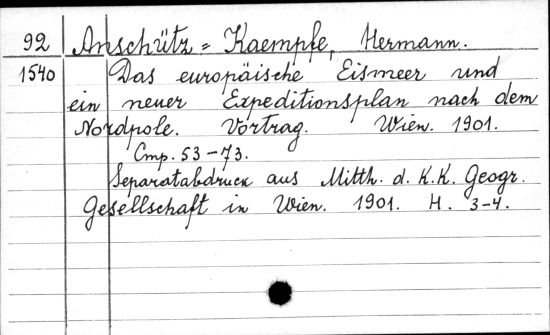 92 Anschütz = Kaempfe, Hermann.
1540 Das europäische Eismeer und
ein neuer Expeditionsplan nach dem
Nordpole. Vortrag. Wien. 1901.
Стр. 53-73.
Separatabdruck aus Mitth. d. K.K. Geogr.
Gesellschaft in Wien. 1901. H. 3-4.